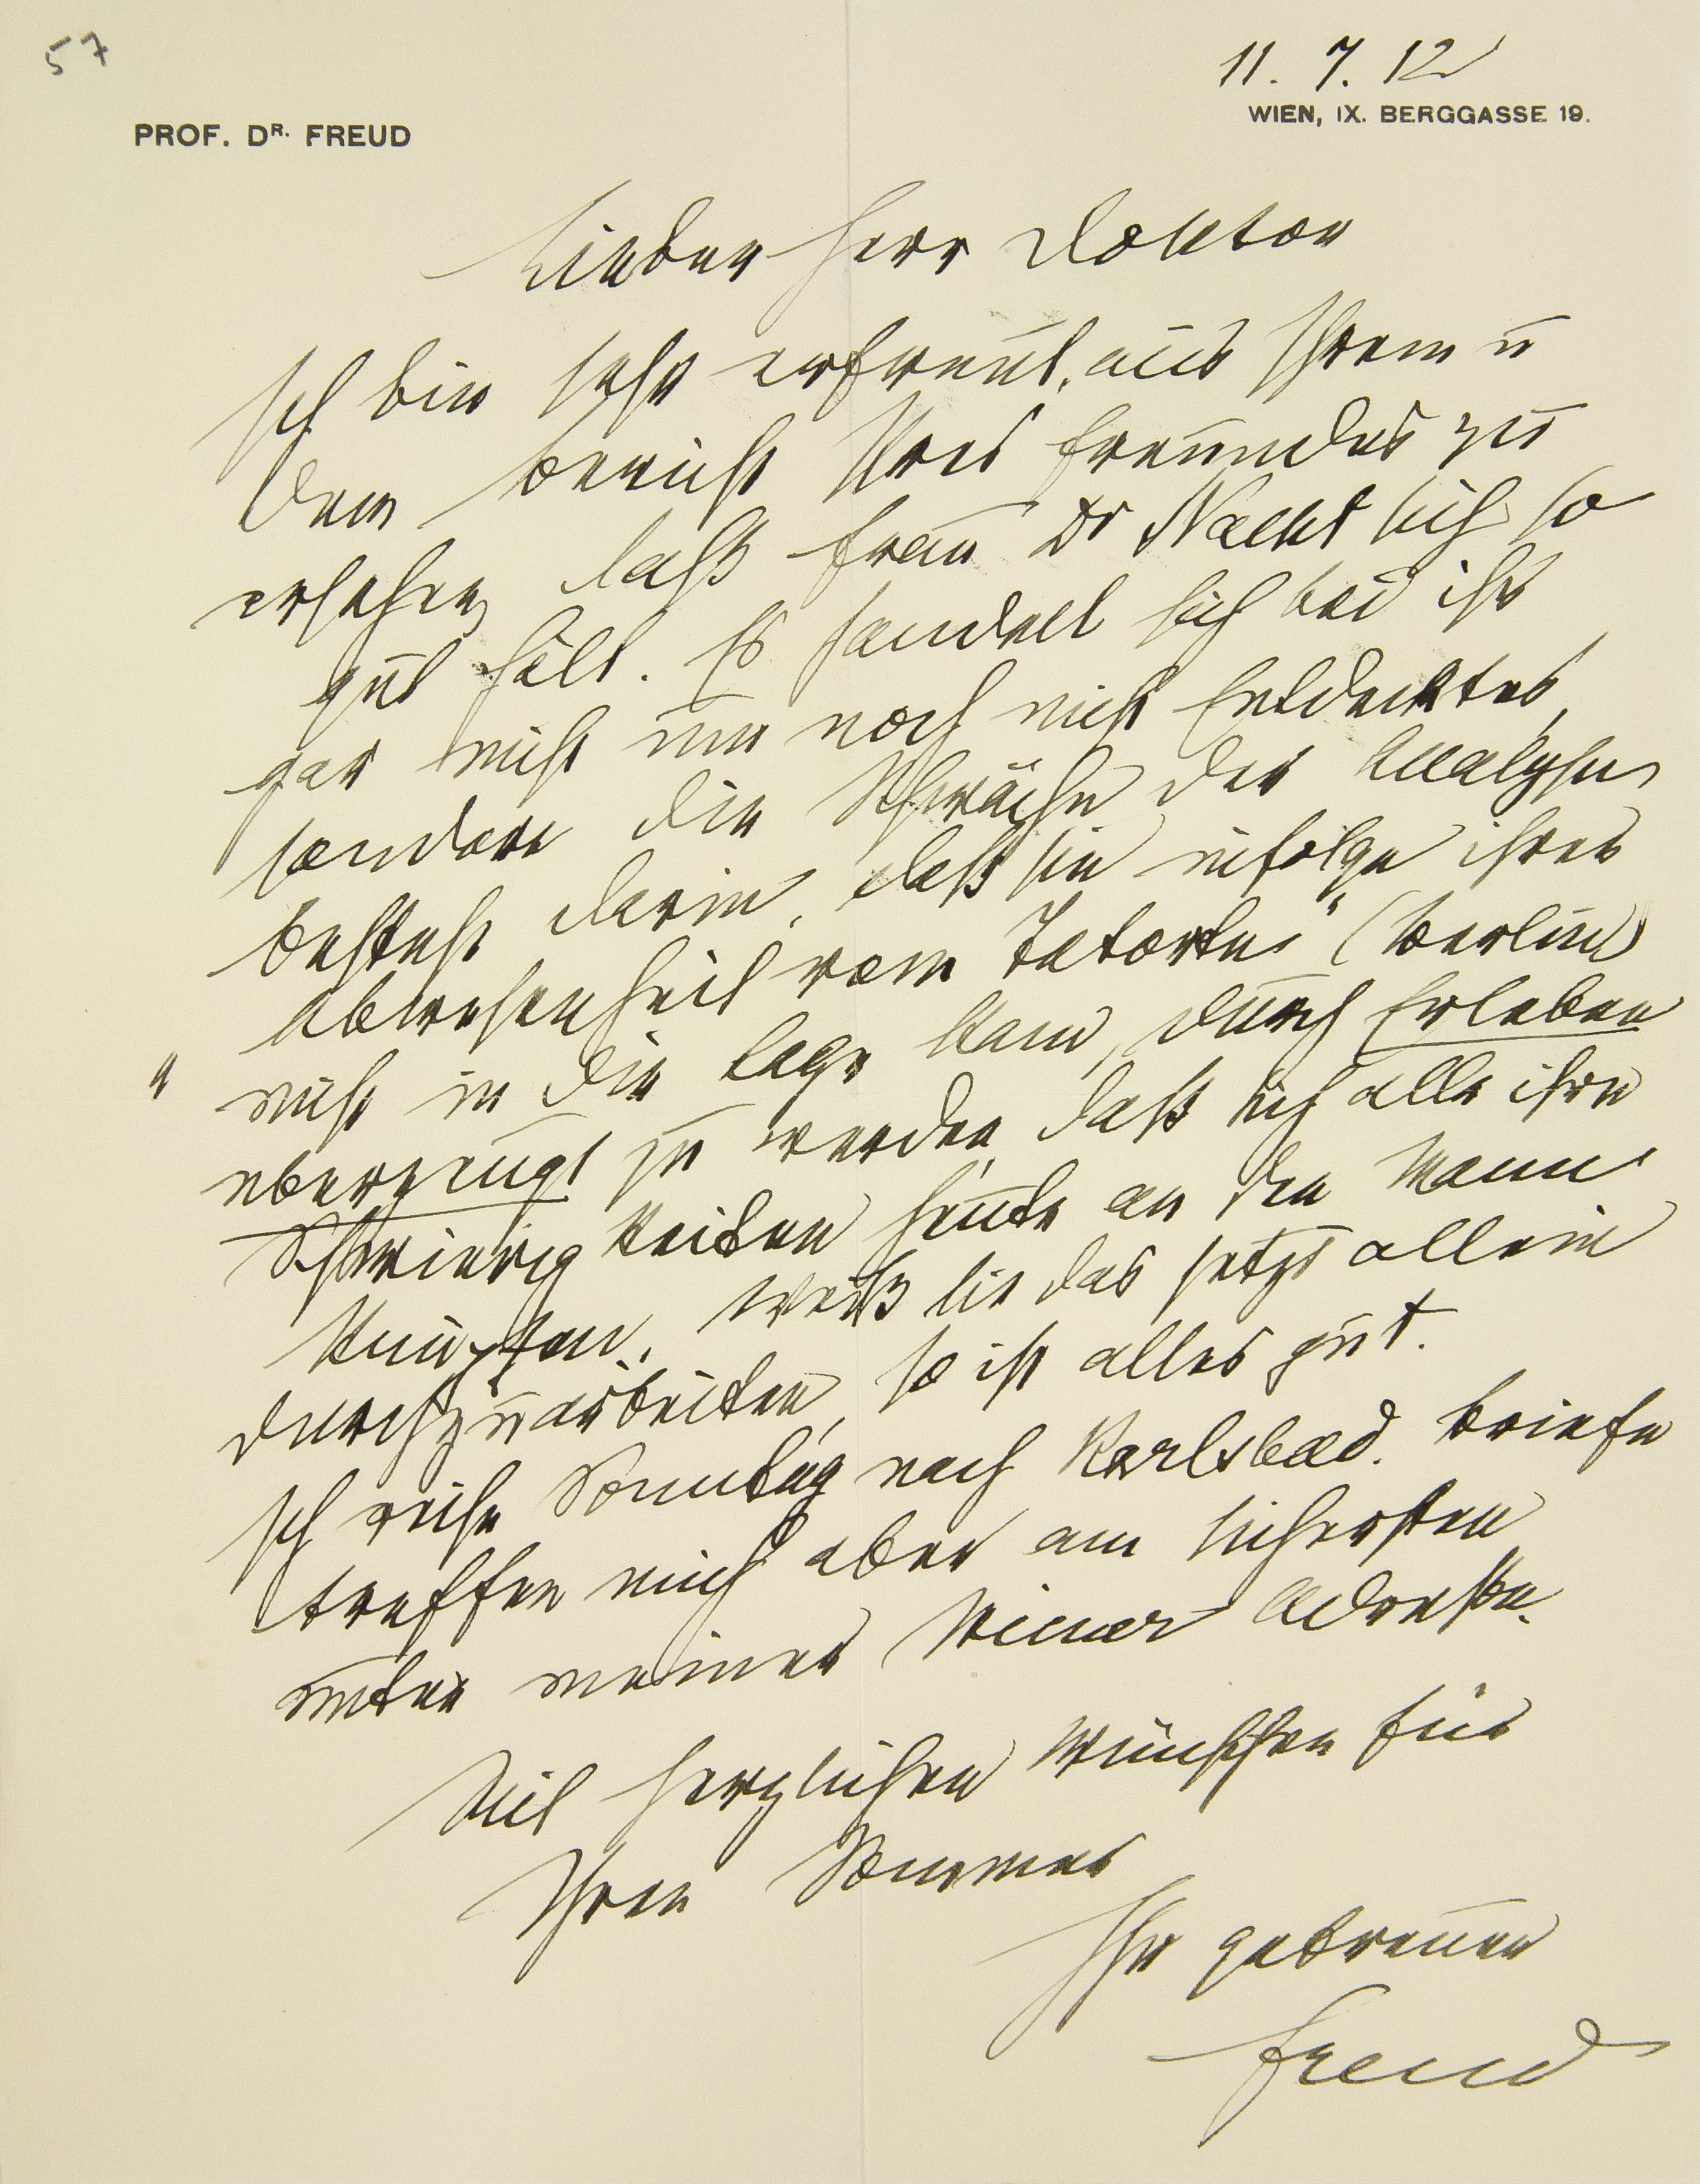 57
11. 7. 12
WIEN, IX. BERGGASSE 19.
PROF. DR. FREUD
Lieber Herr Doktor
Ich bin sehr erfreut, aus Ihrem u
dem Bericht Ihres Freundes zu
ersehen, daß Frau Dr Nacht sich so
gut hält. Es handelt sich bei ihr
gar nicht um noch nicht Entdecktes,
sondern die Schwäche der Analysen
besteht darin, daß sie infolge ihrer
Abwesenheit vom Tatorte" (Berlin)
" nicht in die Lage kam, durch Erleben
überzeugt zu werden, daß sich alle ihre
Schwierigkeiten heute an den Mann
knüpfen. Weiß sie das jetzt allein
durchzuarbeiten, so ist alles gut.
Ich reise Sonntag nach Karlsbad. Briefe
treffen mich aber am sichersten
unter meiner Wiener Adresse.
Mit herzlichen Wünschen für
Ihren Sommer
Ihr getreuer
Freud